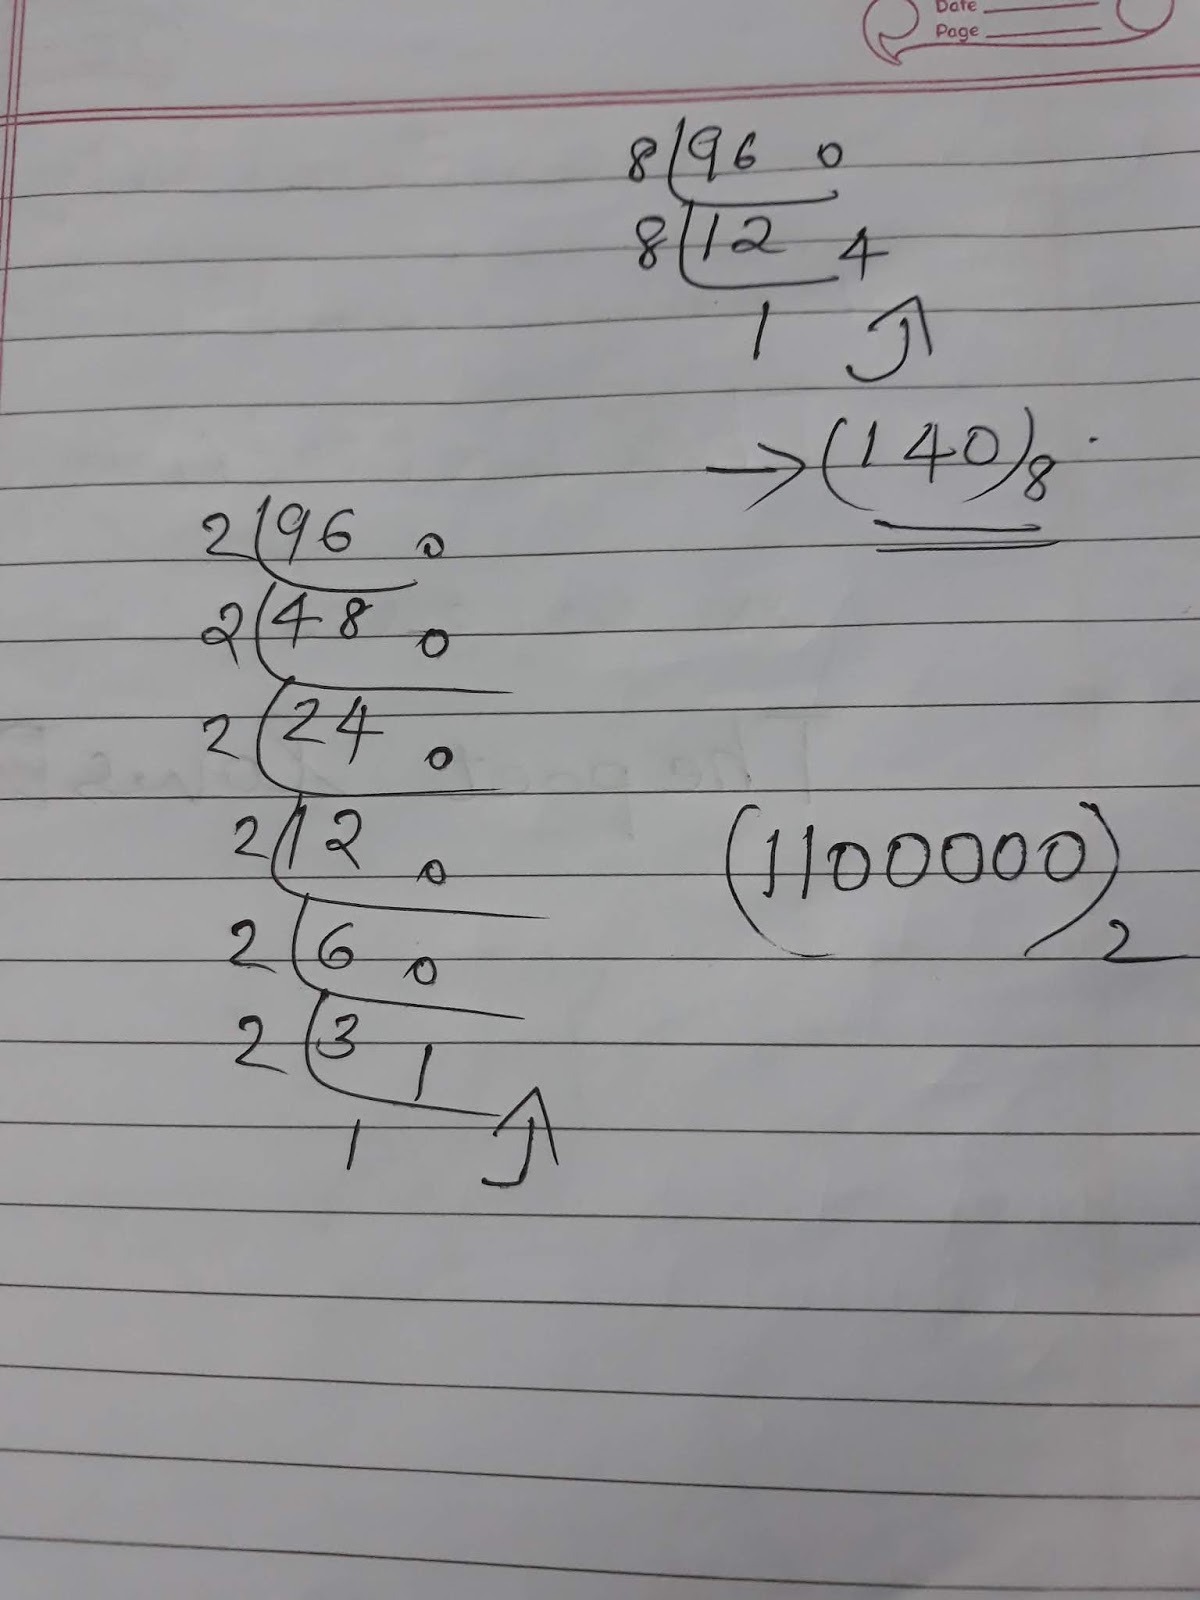 Date
Page
8 96 0
8 12 4
1
→ (140)8
2 96 0
2 48 0
2 24 0
2 12 0
2 6 0
2 3 1
1
(1100000)2